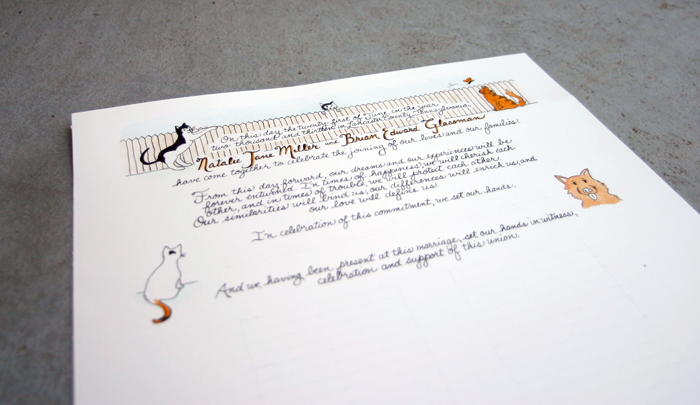 On this day, the twenty first of June in the year
two thousand and thirteen in Lancaster County, Pennsylvania,
Natalie Jane Miller and Brian Edward Glassman
have come together to celebrate the joining of our lives and our families.
From this day forward, our dreams and our experiences will be
forever entwined. In times of happiness, we will cherish each
other, and in times of trouble, we will protect each other.
Our similarities will bind us, our differences will enrich us, and
our love will define us.
In celebration of this commitment, we set our hands.
And we having been present at this marriage, set our hands in witness,
celebration and support of this union.